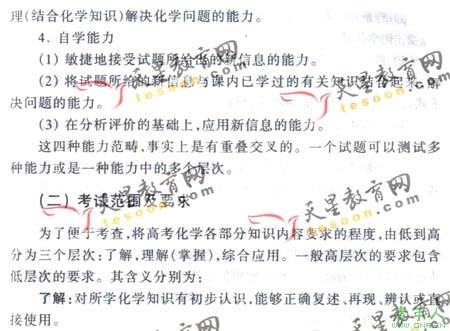 理(结合化学知识)解决化学问题的能力。
4. 自学能力
(1) 敏捷地接受试题所给出的新信息的能力。
(2) 将试题所给的新信息与课内已学过的有关知识结合起来,解
决问题的能力。
(3) 在分析评价的基础上,应用新信息的能力。
这四种能力范畴,事实上是有重叠交叉的。一个试题可以测试多
种能力或是一种能力中的多个层次。
(二) 考试范围及要求
为了便于考查,将高考化学各部分知识内容要求的程度,由低到高
分为三个层次:了解,理解(掌握),综合应用。一般高层次的要求包含
低层次的要求。其含义分别为:
了解:对所学化学知识有初步认识,能够正确复述、再现、辨认或直
接使用。
天星教育网
tesoon.com
天星教育网
tesoon.com
天星教育网
tesoon.com
天星教育网
tesoon.com